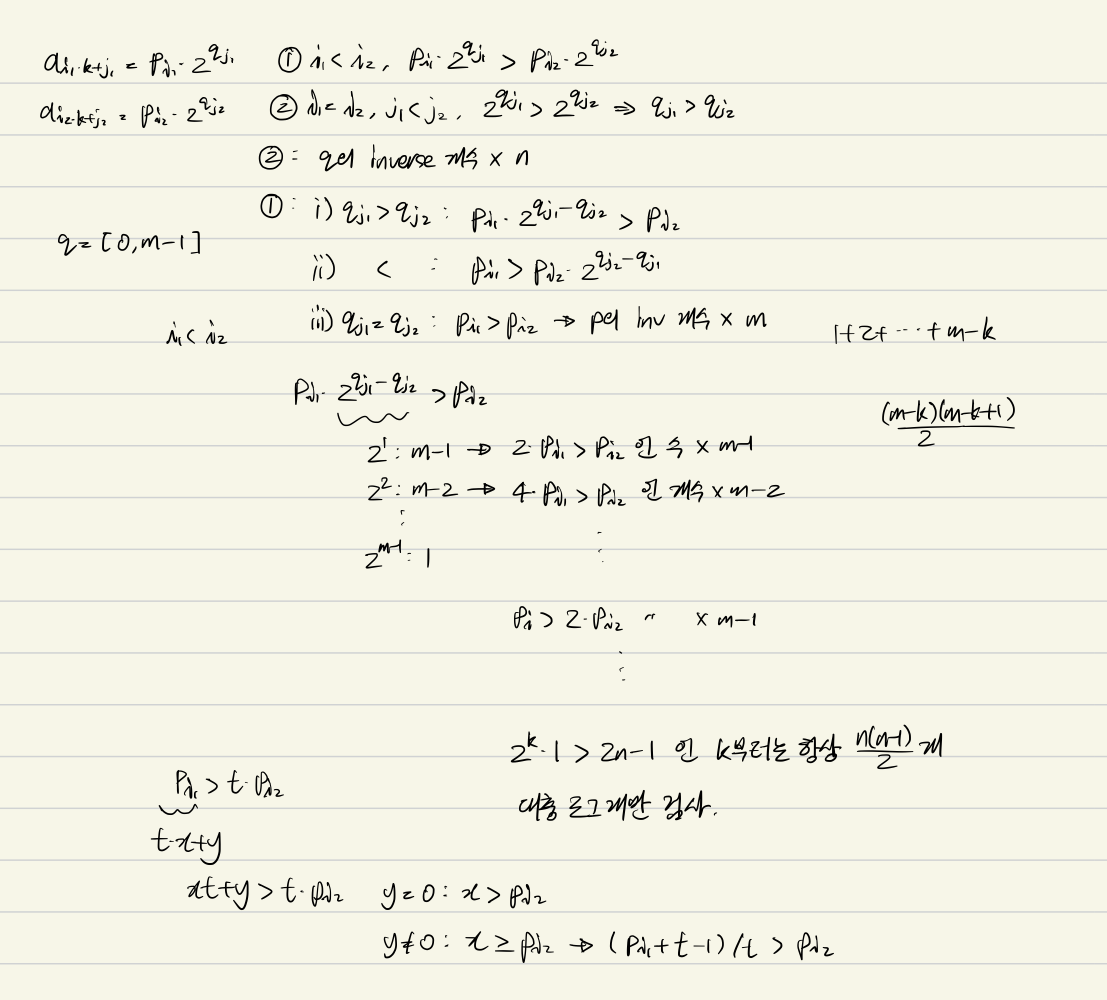 a_{i₁·k+j₁} = p_{i₁}·2^{q_{j₁}} ① i₁<i₂, p_{i₁}·2^{q_{j₁}} > p_{i₂}·2^{q_{j₂}}
a_{i₂·k+j₂} = p_{i₂}·2^{q_{j₂}} ② i₁=i₂, j₁<j₂, 2^{q_{j₁}} > 2^{q_{j₂}} ⇒ q_{j₁} > q_{j₂}
② : q의 inverse 개수 × n
① : i) q_{j₁}>q_{j₂} : p_{i₁}·2^{q_{j₁}-q_{j₂}} > p_{i₂}
q = [0, m-1]
ii) < : p_{i₁} > p_{i₂}·2^{q_{j₂}-q_{j₁}}
i₁<i₂ iii) q_{j₁}=q_{j₂} : p_{i₁}>p_{i₂} → p의 inv 개수 × m
1+2+ ⋯ + m-k
p_{i₁}·2^{q_{j₁}-q_{j₂}} > p_{i₂}
(m-k)(m-k+1)/2
2^1 : m-1 → 2·p_{i₁} > p_{i₂} 인 수 × m-1
2^2 : m-2 → 4·p_{i₁} > p_{i₂} 인 개수 × m-2
⋮ ⋮
2^{m-1} : 1
p_{i₁} > 2·p_{i₂} 〃 × m-1
⋮
2^k·1 > 2n-1 인 k부터는 항상 n(n-1)/2 개
p_{i₁} > t·p_{i₂}
대충 로그개만 검사.
t·x+y
xt+y > t·p_{i₂} y=0 : x > p_{i₂}
y≠0 : x ≥ p_{i₂} → (p_{i₁}+t-1)/t > p_{i₂}